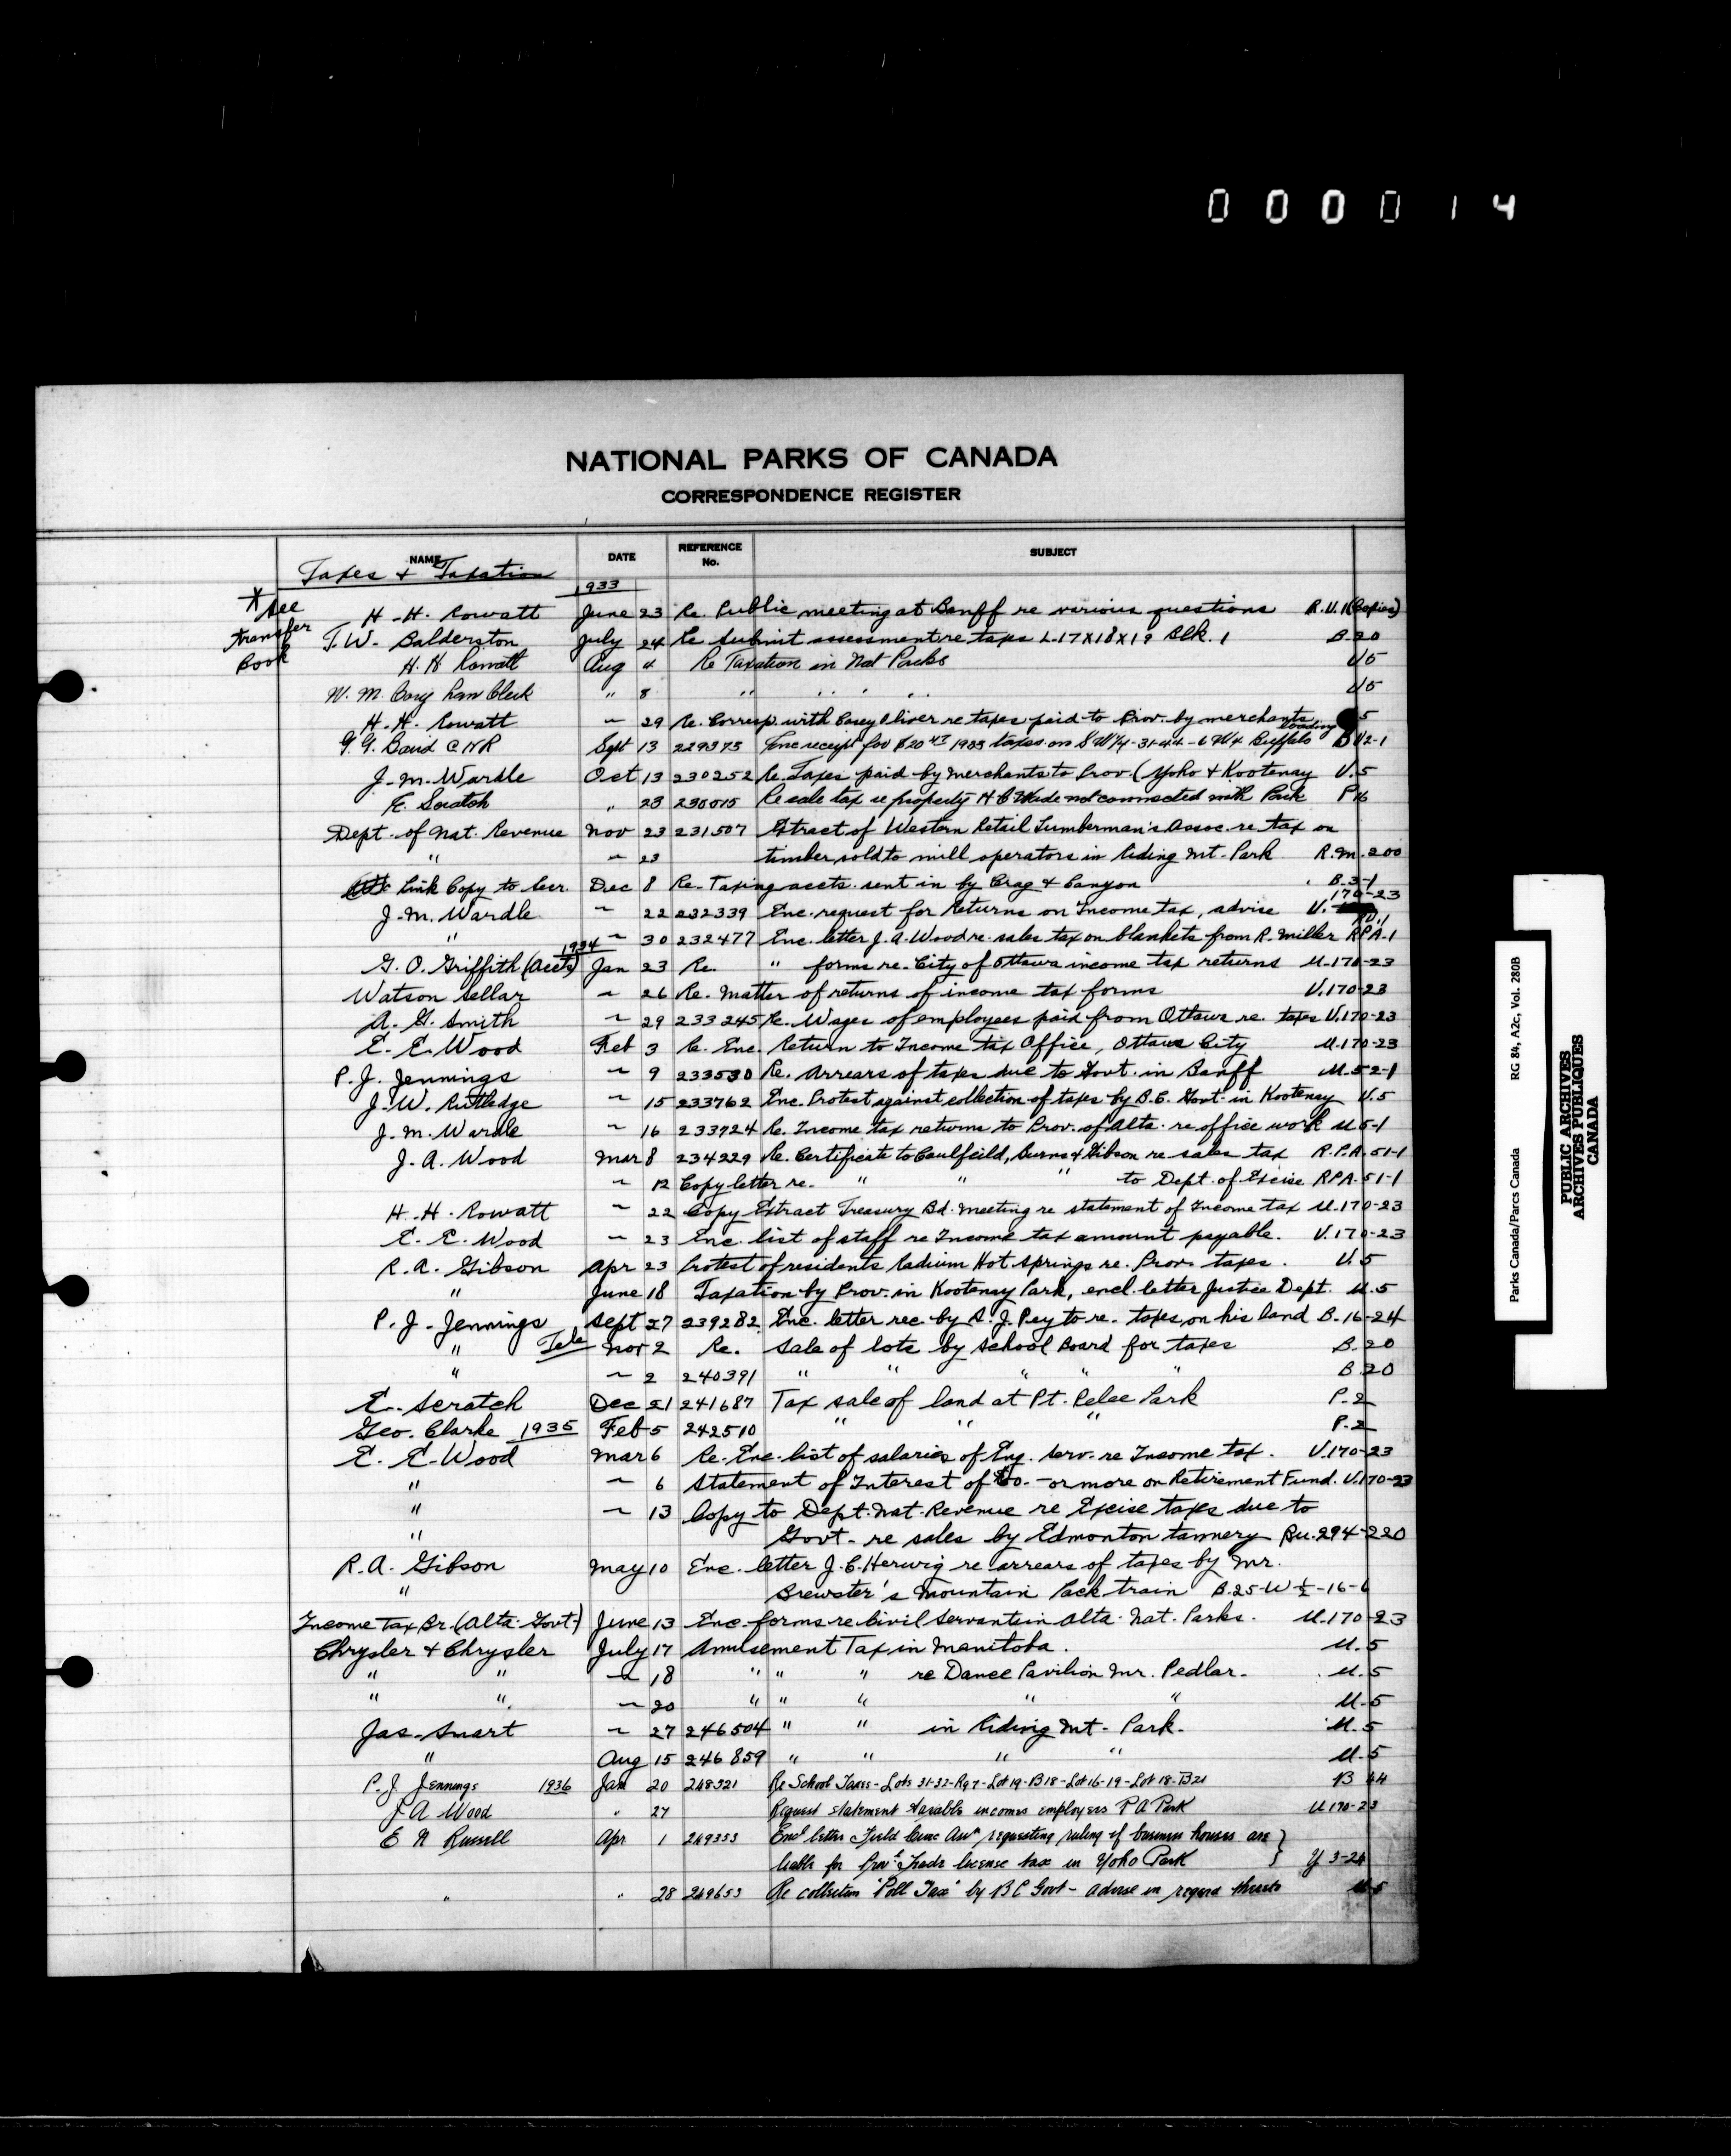 0 0 0 0 1 4
NATIONAL PARKS OF CANADA
CORRESPONDENCE REGISTER
NAME DATE REFERENCE No. SUBJECT
Taxes & Taxation
1933
* See transfer Book
H. H. Rowatt June 23 Re. Public meeting at Banff re various questions R.U.1 (Copies)
T. W. Balderston July 24 Re. Submit assessment re taxes L-17X18X19 Blk. 1 B.20
H. H. Rowatt Aug 4 Re Taxation in Nat Parks U5
W. M. Cory Law Clerk " 8 " " " " U5
H. H. Rowatt ~ 29 Re. Corresp. with Casey Oliver re taxes paid to Prov. by merchants 5
G. G. Baird C N R Sept 13 229375 Enc receipt for $20 taxes on SW¼-31-44-6 W4 Buffalo loading B U2-1
J. M. Wardle Oct 13 230252 Re. Taxes paid by merchants to Prov. (Yoho & Kootenay U.5
E. Scratch " 23 230015 Re sale tax re property H C Wade not connected with Park P16
Dept. of Nat. Revenue Nov 23 231507 Extract of Western Retail Lumberman's Assoc. re tax on
" ~ 23 timber sold to mill operators in Riding Mt. Park R.M.200
Link Copy to Secr. Dec 8 Re. Taxing accts. sent in by Crag & Canyon B.3-1
J. M. Wardle ~ 22 232339 Enc. request for Returns on Income tax, advise U. 170-23
" ~ 30 232477 Enc. letter J. A. Wood re. sales tax on blankets from R. Miller RPA.1
1934
G. O. Griffith (Accts) Jan 23 Re. " forms re. City of Ottawa income tax returns U.170-23
Watson Sellar ~ 26 Re. Matter of returns of income tax forms U.170-23
A. G. Smith ~ 29 233245 Re. Wages of employees paid from Ottawa re. taxes U.170-23
E. E. Wood Feb 3 Re. Enc. Return to Income tax Office, Ottawa City U.170-23
P. J. Jennings ~ 9 233530 Re. Arrears of taxes due to Govt. in Banff U.52-1
J. W. Rutledge ~ 15 233762 Enc. Protest against collection of taxes by B.C. Govt. in Kootenay U.5
J. M. Wardle ~ 16 233724 Re. Income tax returns to Prov. of Alta. re office work U.5-1
J. A. Wood Mar 8 234229 Re. Certificate to Caulfeild, Burns & Gibson re sales tax R.P.A.51-1
~ 12 Copy letter re. " " " to Dept. of Excise RPA.51-1
H. H. Rowatt ~ 22 Copy Extract Treasury Bd. meeting re statement of Income tax U.170-23
E. E. Wood ~ 23 Enc. list of staff re Income tax amount payable. U.170-23
R. A. Gibson Apr 23 Protest of residents Radium Hot Springs re. Prov. taxes. U.5
" June 18 Taxation by Prov. in Kootenay Park, encl. letter Justice Dept. U.5
P. J. Jennings Sept 27 239282 Enc. letter rec. by S. J. Peyto re. taxes on his land B.16-24
" Tele Nov 2 Re. Sale of lots by School Board for taxes B.20
" ~ 2 240391 " " " " B.20
E. Scratch Dec 21 241687 Tax sale of land at Pt. Pelee Park P.2
Geo. Clarke 1935 Feb 5 242510 " " " P.2
E. E. Wood Mar 6 Re. Enc. list of salaries of Eng. Serv. re Income tax. U.170-23
" ~ 6 Statement of Interest of or more on Retirement Fund. U.170-23
" ~ 13 Copy to Dept. Nat. Revenue re Excise taxes due to
" Govt. re sales by Edmonton tannery Bu.294-220
R. A. Gibson May 10 Enc. letter J. C. Herwig re arrears of taxes by Mr.
" Brewster's Mountain Pack train B.25-W½-16-6
Income Tax Br. (Alta. Govt.) June 13 Enc. forms re Civil Servants in Alta. Nat. Parks. U.170-23
Chrysler & Chrysler July 17 Amusement Tax in Manitoba. U.5
" " ~ 18 " " " re Dance Pavilion Mr. Pedlar. U.5
" " ~ 20 " " " " " U.5
Jas. Smart ~ 27 246504 " " in Riding Mt. Park. U.5
" Aug 15 246859 " " " " U.5
P. J. Jennings 1936 Jan 20 248321 Re School Taxes - Lots 31-32-R97-Lot 19-B18-Lot 16-19-Lot 18-B21 B 44
J A Wood " 27 Request statement taxable incomes employees P A Park U 170-23
E N Russell Apr 1 249353 Encl letter Field Civic Assn, requesting ruling if business houses are
liable for Prov'l Trade license tax in Yoho Park } Y 3-24
" " 28 249653 Re collection "Poll Tax" by B C Govt - advise in regard thereto U-5
Parks Canada/Parcs Canada RG 84, A2c, Vol. 280B
PUBLIC ARCHIVES
ARCHIVES PUBLIQUES
CANADA